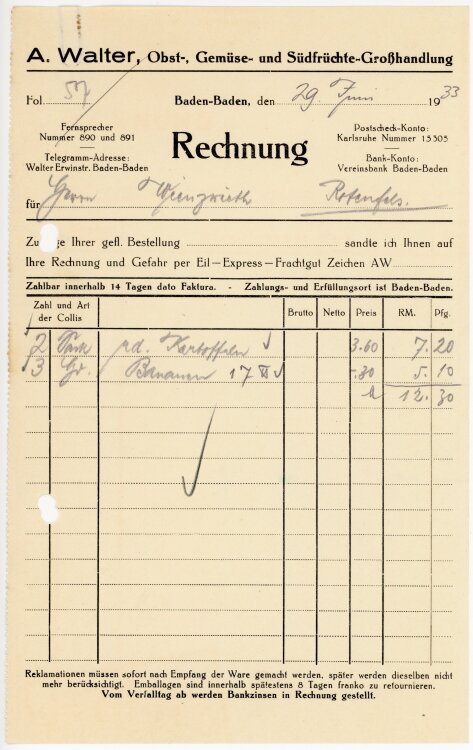 A. Walter, Obst-, Gemüse- und Südfrüchte-Großhandlung
Fol. 57 Baden-Baden, den 29. Juni 1933
Fernsprecher
Nummer 890 und 891
Telegramm-Adresse:
Walter Erwinstr. Baden-Baden
Rechnung
Postscheck-Konto:
Karlsruhe Nummer 15305
Bank-Konto:
Vereinsbank Baden-Baden
für Herrn Rotenfels.
Zu ge Ihrer gefl. Bestellung sandte ich Ihnen auf
Ihre Rechnung und Gefahr per Eil-Express-Frachtgut Zeichen AW
Zahlbar innerhalb 14 Tagen dato Faktura. - Zahlungs- und Erfüllungsort ist Baden-Baden.
Zahl und Art der Collis Brutto Netto Preis RM. Pfg.
2 Sack Kartoffeln 3.60 7. 20
3 Bananen 17 -.30 5. 10
12. 30
Reklamationen müssen sofort nach Empfang der Ware gemacht werden, später werden dieselben nicht
mehr berücksichtigt. Emballagen sind innerhalb spätestens 8 Tagen franko zu retournieren.
Vom Verfalltag ab werden Bankzinsen in Rechnung gestellt.